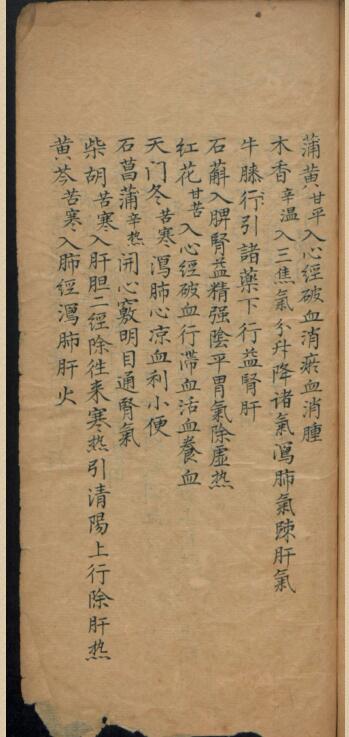 蒲黄甘平入心經破血消瘀血消腫
木香辛温入三焦氣分升降诸氣瀉肺氣踈肝氣
牛膝行引諸藥下行益腎肝
石斛入脾腎益精强陰平胃氣除虚热
红花甘苦入心經破血行滞血活血養血
天门冬苦寒瀉肺心凉血利小便
石菖蒲辛热開心竅明目通腎氣
柴胡苦寒入肝胆二經除往来寒热引清陽上行除肝热
黄芩苦寒入肺經瀉肺肝火